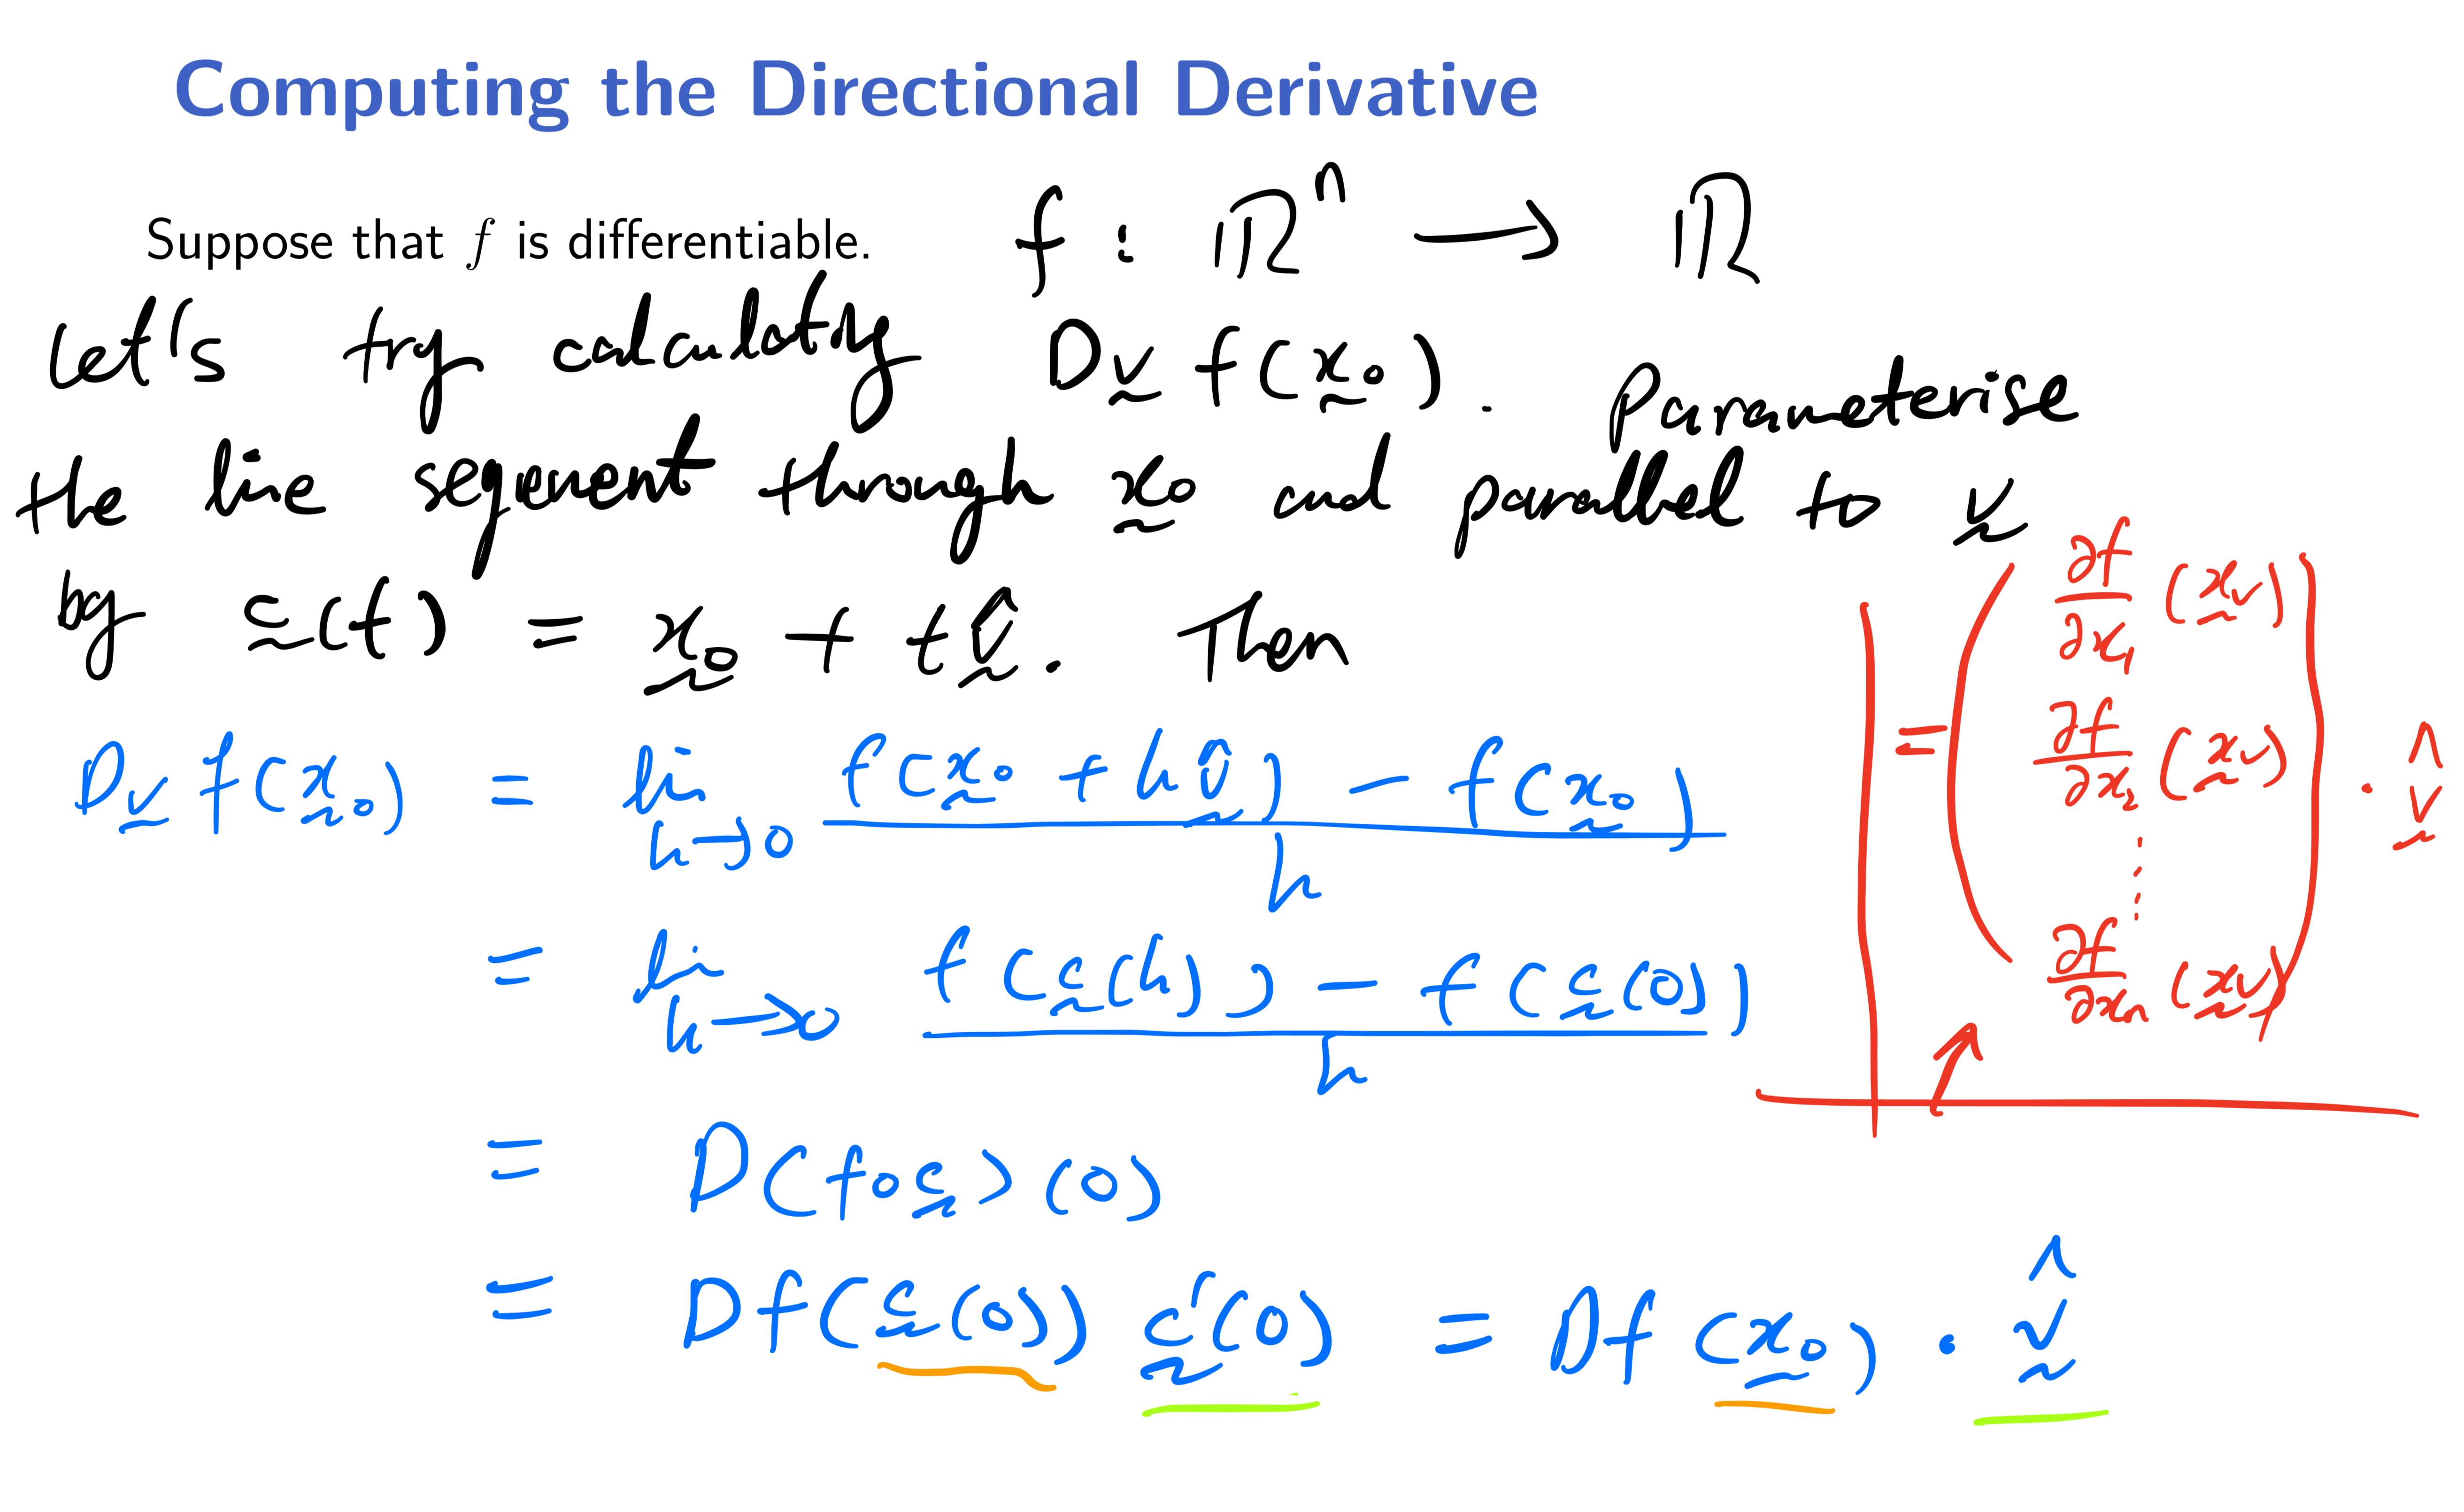 Computing the Directional Derivative
Suppose that f is differentiable. f : ℝⁿ → ℝ
Let's try calculating D_v̰ f(x̰₀). Parameterise
the line segment through x̰₀ and parallel to v̰
by c̰(t) = x̰₀ + t v̰̂. Then
D_v̰ f(x̰₀) = lim_{h→0} (f(x̰₀ + h v̰̂) − f(x̰₀)) / h
= lim_{h→0} (f(c̰(h)) − f(c̰(0))) / h
= D(f∘c̰)(0)
= Df(c̰(0)) c̰'(0) = Df(x̰₀) · v̰̂
= ( ∂f/∂x₁ (x̰₀)
∂f/∂x₂ (x̰₀)
⋮
∂f/∂xₙ (x̰₀) ) · v̰̂